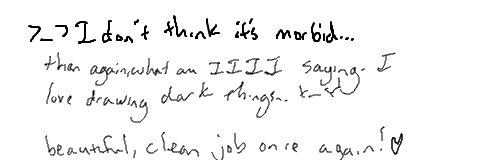 >_> I don't think it's morbid...
then again, what am IIII saying. I
love drawing dark things.. x_x
beautiful, clean job once again! ♡